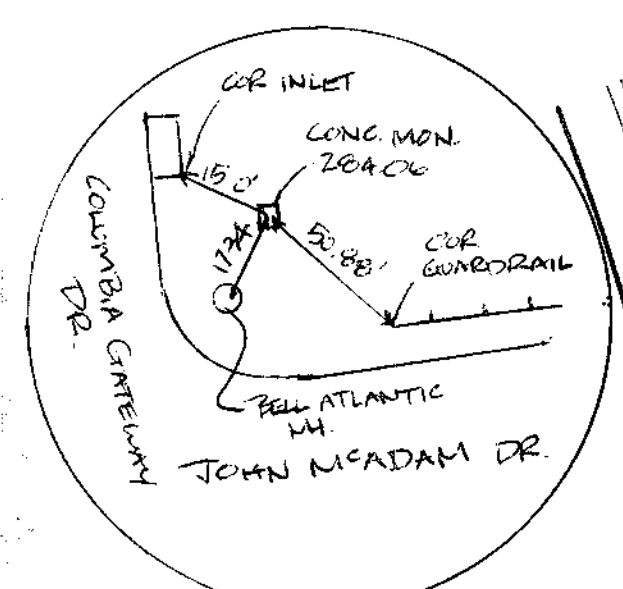 COR INLET
CONC. MON.
15.0'
50.88'
COR
GUARDRAIL
COLUMBIA GATEWAY
DR.
BELL ATLANTIC
MH.
JOHN McADAM DR.